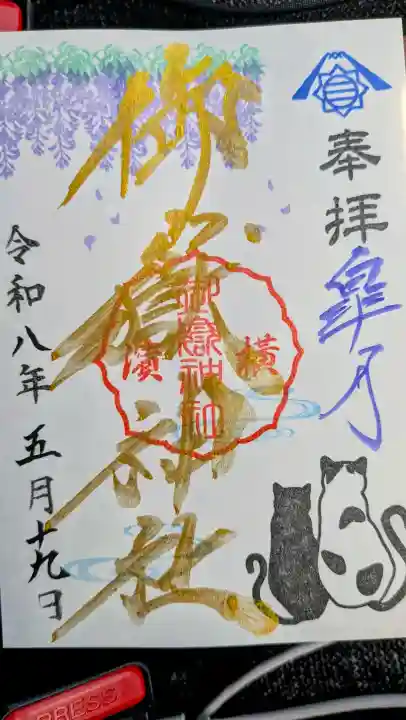 奉拝
皐月
御嶽神社
横
御嶽神社
濱
令和八年五月十九日
PRESS